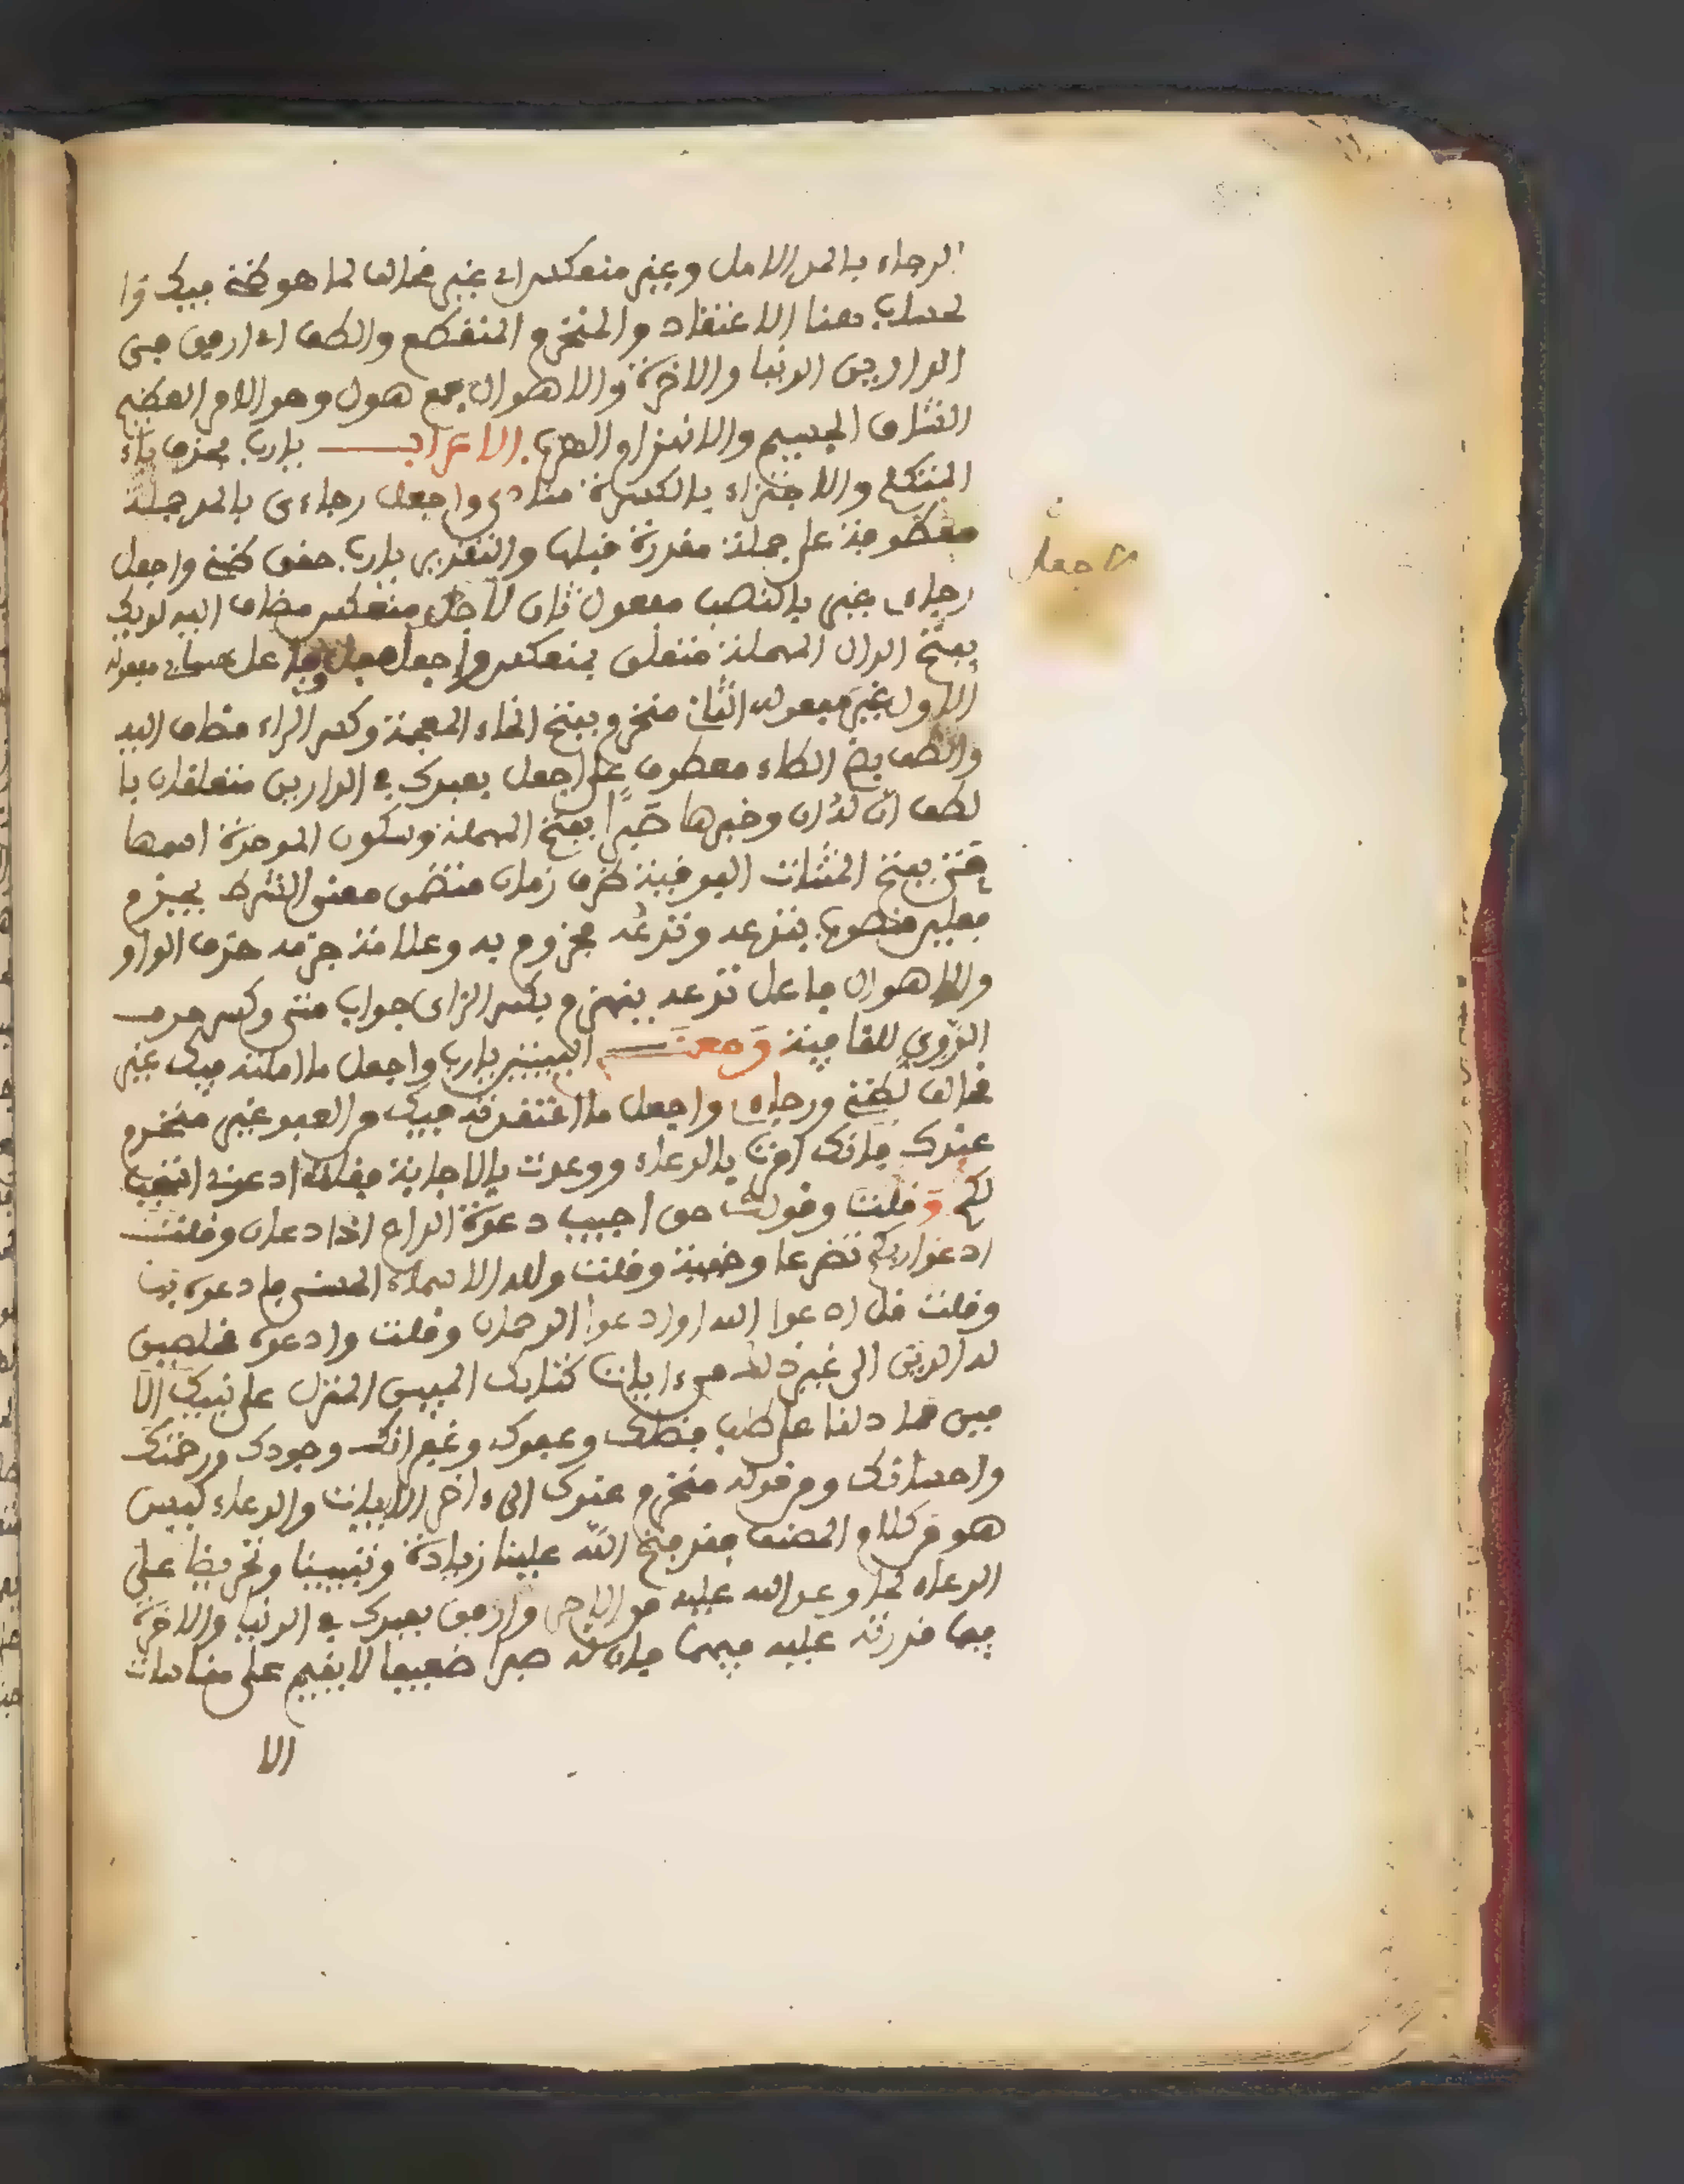 الرجاء بالمد الامل وغير منعكس اي غير مخالف لما هو ظنه فيك والـ
لحساب هنا الاعتقاد والمنخرم المنقطع والطف اي ارفق في
الدارين الدنيا والاخرة والاهوال جمع هول وهو الامر العظيم
الشاق الجسيم والانهزام الهرب. الاعراب يارب بحذف ياء
المتكلم والاجتزاء بالكسرة منادى واجعل رجاءى بالمد جملة
معطوفة على جملة مقدرة قبلها والتقدير يارب حقق ظني واجعل
رجاءى غير بالنصب مفعول ثان لاجعل منعكس مضاف اليه لديك
بفتح الدال المهملة متعلق بمنعكس واجعل فعل وفاعل حسابى مفعوله
الاول غير مفعوله الثان منخرم بفتح الخاء المعجمة وكسر الراء مضاف اليه
والطف بضم الطاء معطوف على اجعل بعبدك في الدارين متعلقان با
لطف ان له ان وخبرها صبرا بفتح المهملة وسكون الموحدة اسمها
متى بفتح المثنات الفوقية ظرف زمان متضمن معنى الشرط يجزم
فعلين منصوب بتدعه وتدعه مجزوم به وعلامة جزمه حذف الواو
والاهوال فاعل تدعه ينهزم بكسر الزاى جواب متى وكسر حرف
الروي للقافية ومعنى البيتين يارب واجعل ما املته فيك غير
مخالف لظني ورجاءى واجعل ما اعتقدته فيك من العفو غير منخرم
عندك فانك امرت بالدعاء ووعدت بالاجابة فقلت ادعوني استجب
لكم وقلت وقولك حق اجيب دعوة الداع اذا دعان وقلت
ادعوا ربكم تضرعا وخفية وقلت ولله الاسماء الحسنى فادعوه بها
وقلت قل ادعوا الله او ادعوا الرحمان وقلت وادعوه مخلصين
له الدين الى غير ذلك من ءايات كتابك المبين المنزل على نبيك الا
مين مما دلنا على طلب فضلك وعفوك وغفرانك وجودك ورحمتك
واحسانك ومن قوله منخرم عندك الى ءاخر الابيات والدعاء ليس
هو من كلام المصنف فقد فتح الله علينا زيادة وتنبيها وتحريضا على
الدعاء لما وعد الله عليه من الاجر وارفق بعبدك في الدنيا والاخرة
فيما قدرته عليه فيهما فان له صبرا ضعيفا لا يقيم على مقاسات
الا
اجعل